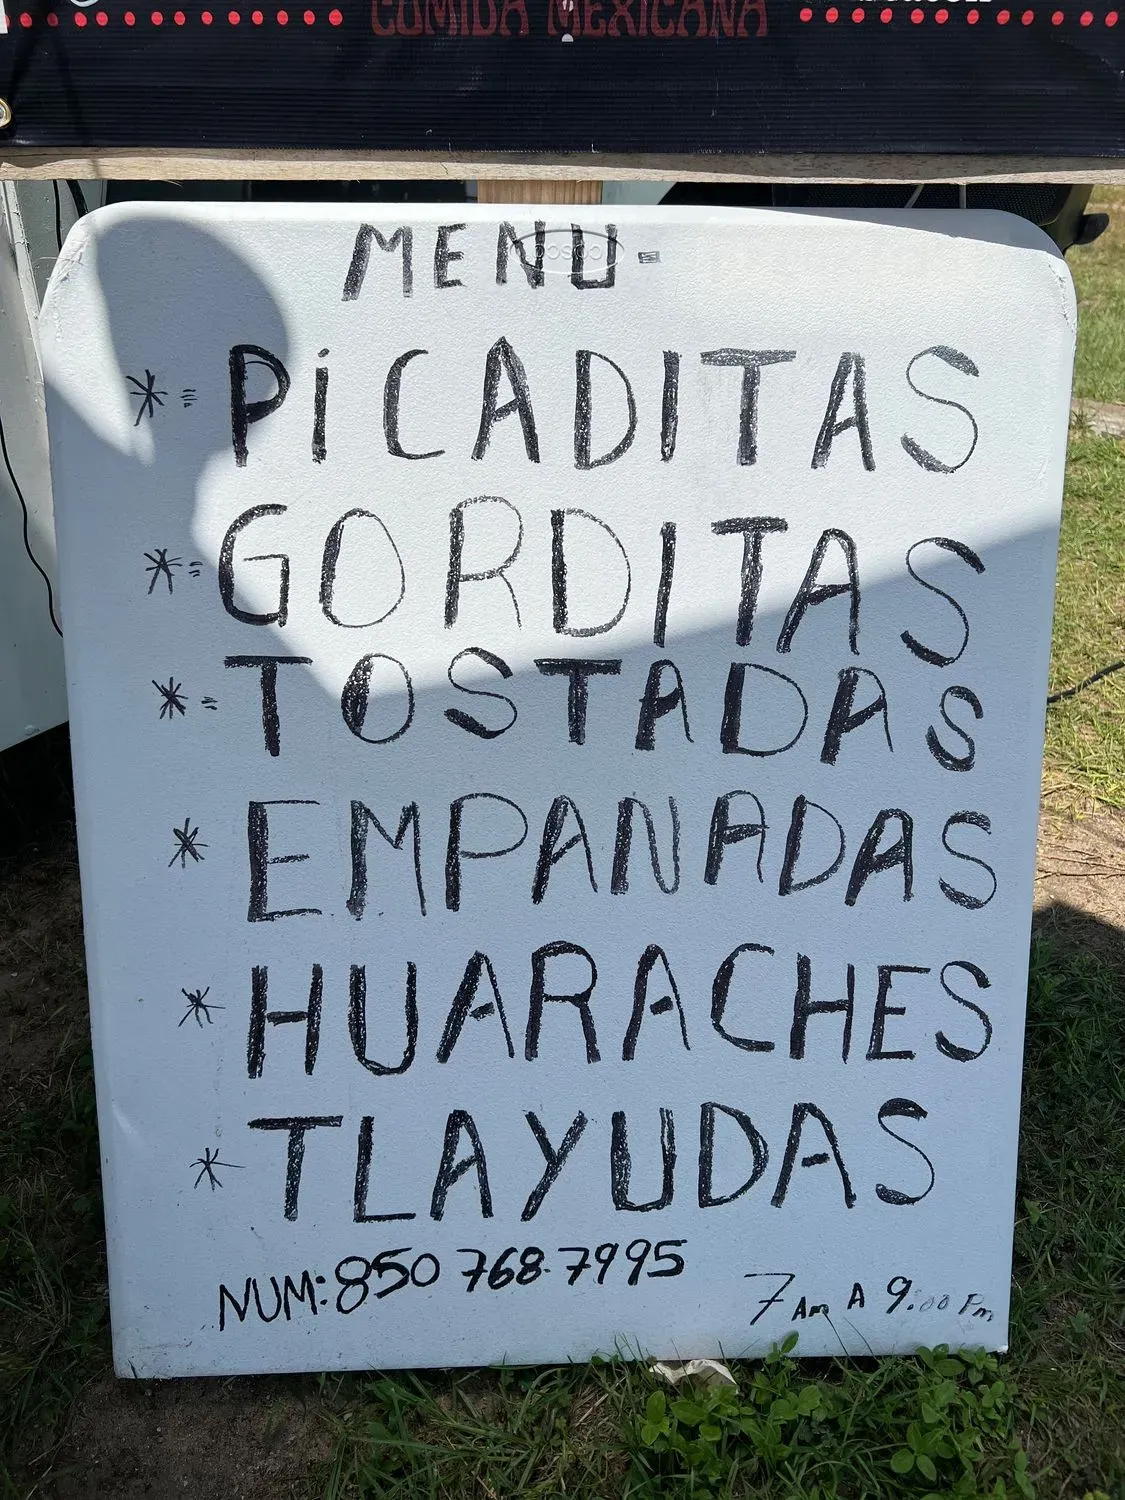 COMIDA MEXICANA
MENU-
COSCO
*= PiCADITAS
*= GORDITAS
*= TOSTADAS
* EMPANADAS
* HUARACHES
* TLAYUDAS
NUM: 850 768-7995
7 Am A 9:00 Pm